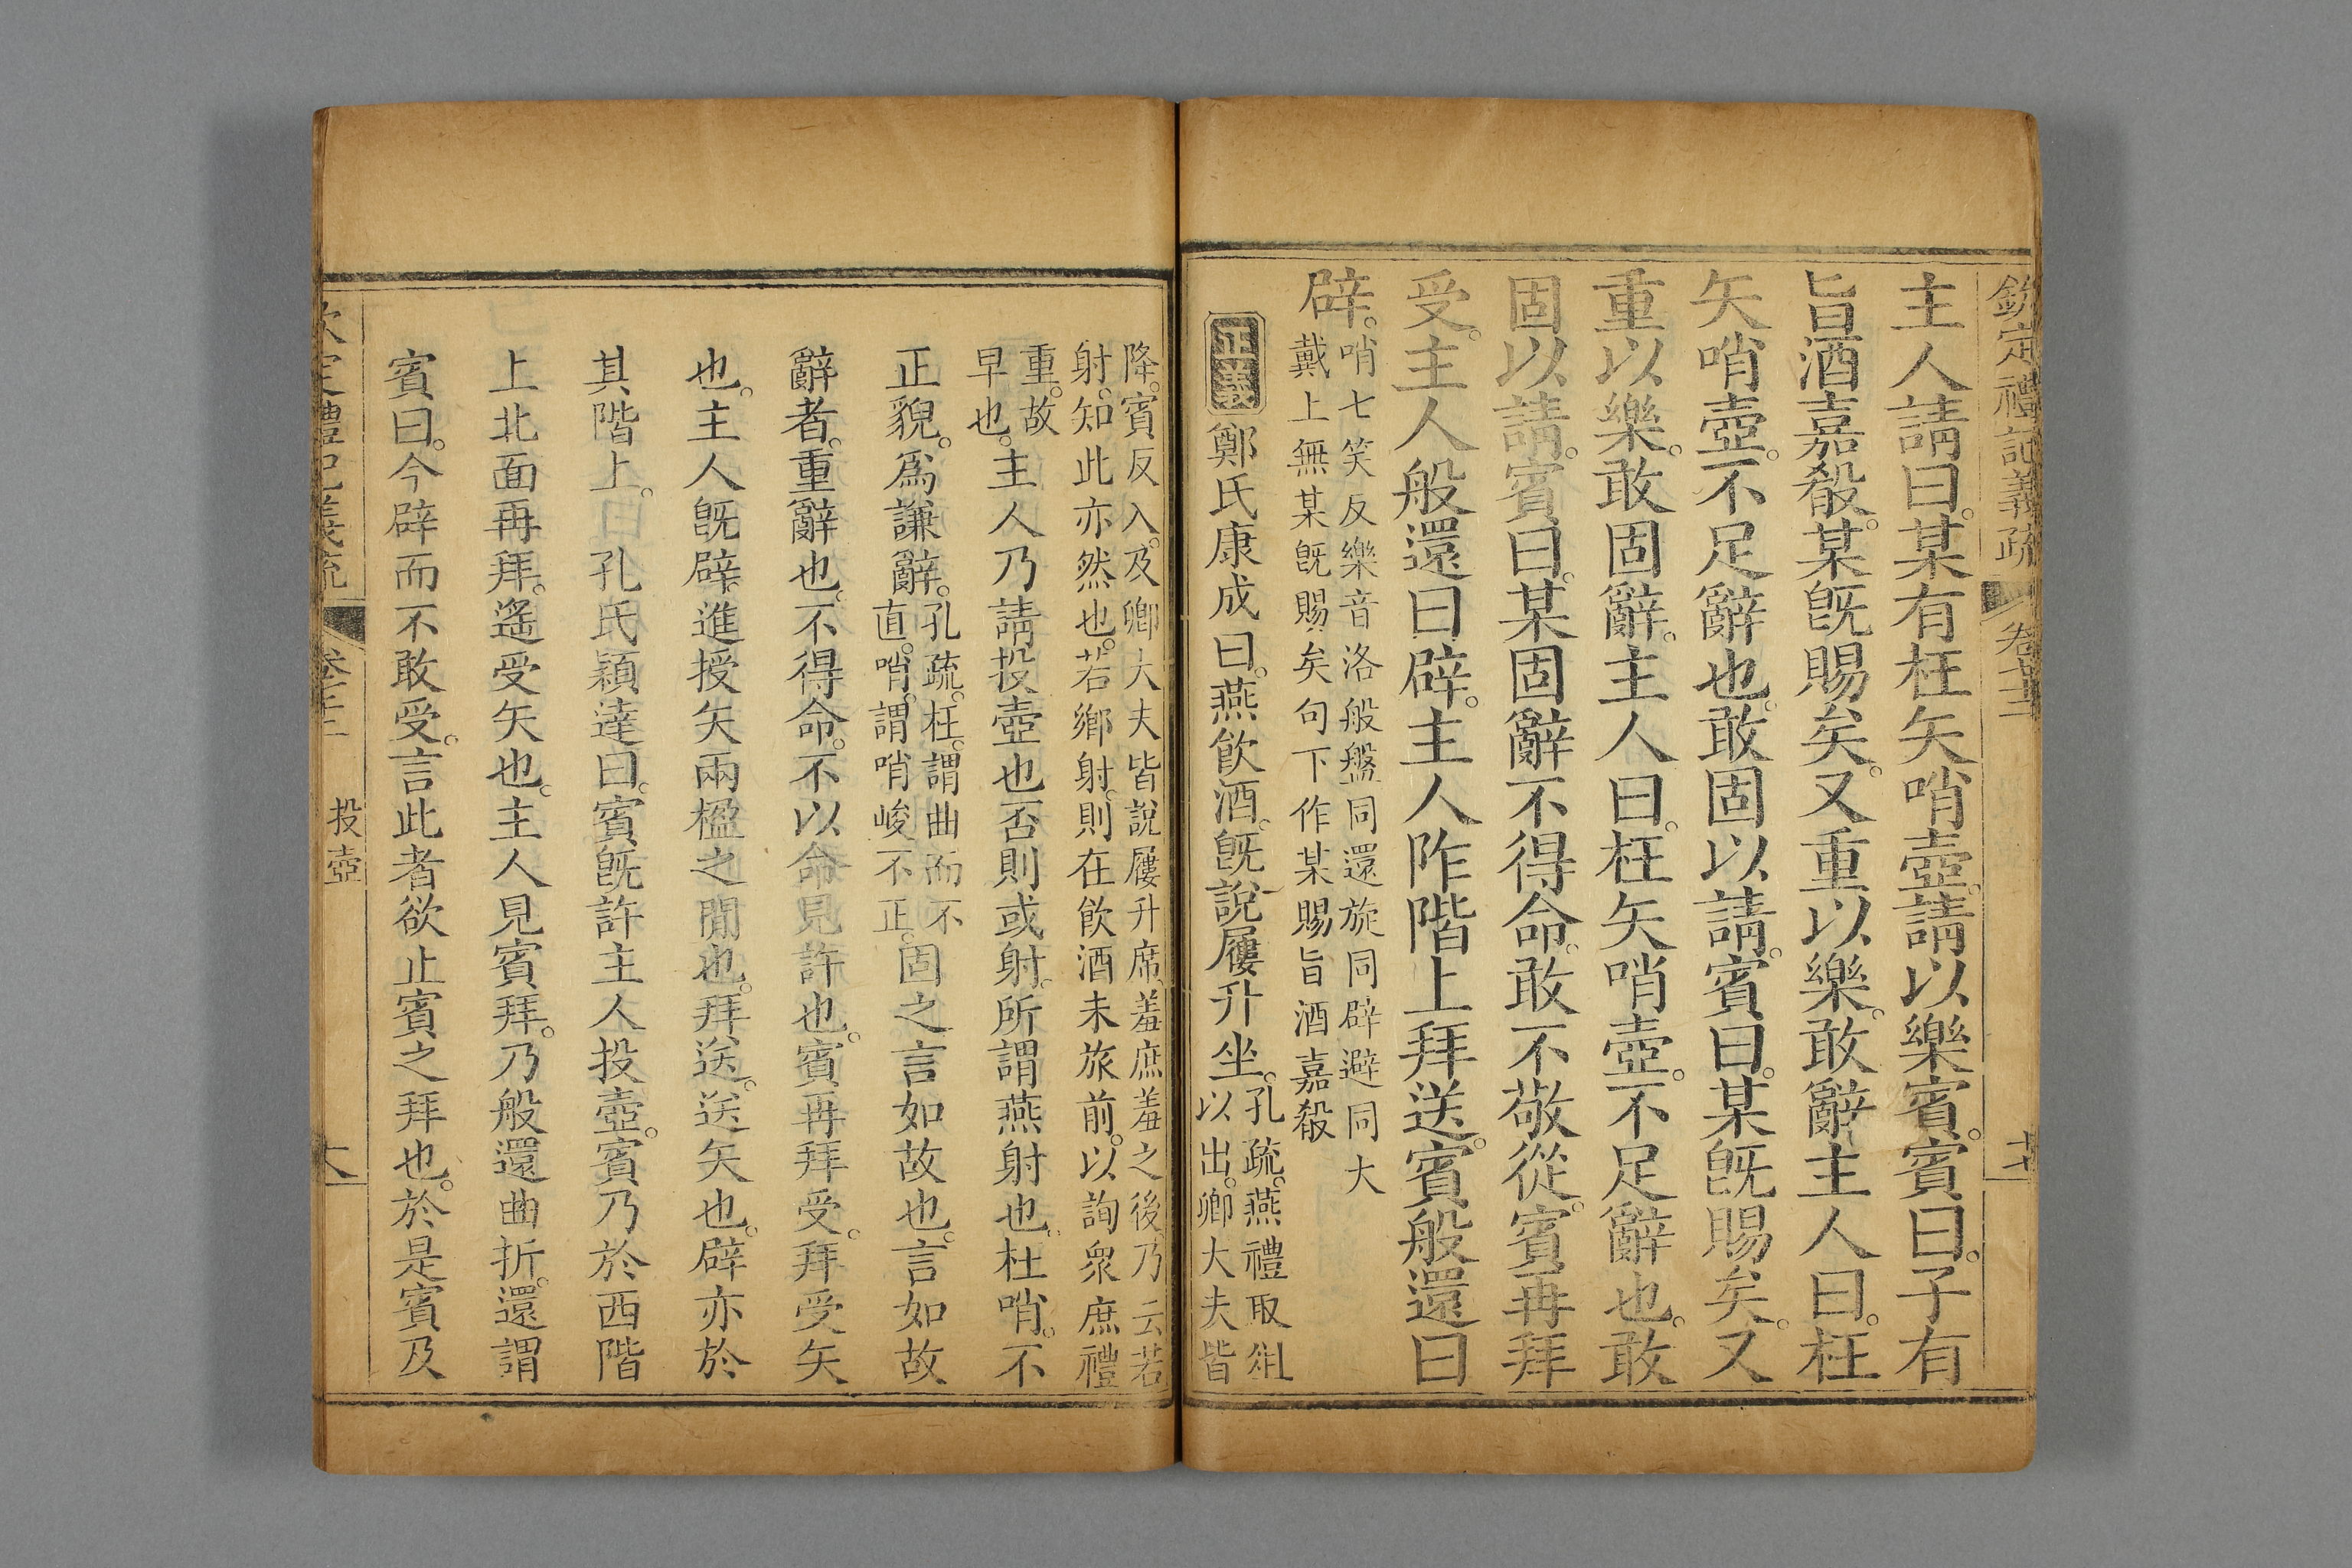 欽定禮記義疏 卷七十三 十七
主人請曰。某有枉矢哨壺。請以樂賓。賓曰。子有
旨酒嘉殽。某旣賜矣。又重以樂。敢辭主人曰。枉
矢哨壺。不足辭也。敢固以請。賓曰。某旣賜矣。又
重以樂。敢固辭。主人曰。枉矢哨壺。不足辭也。敢
固以請。賓曰。某固辭不得命。敢不敬從。賓再拜
受。主人般還曰辟。主人阼階上拜送。賓般還曰
辟。
哨七笑反樂音洛般盤同還旋同辟避同大
戴上無某旣賜矣句下作某賜旨酒嘉殽
正義 鄭氏康成曰。燕飮酒。旣說屨升坐。
孔疏。燕禮取俎
以出。卿大夫皆
降。賓反入。及卿大夫皆說屨升席。羞庶羞之後。乃云若
射。知此亦然也。若鄉射。則在飮酒未旅前。以詢衆庶禮
重。故
早也。
主人乃請投壺也否則或射。所謂燕射也。枉哨。不
正貌。爲謙辭。
孔疏。枉。謂曲而不
直。哨。謂哨峻不正。
固之言如故也。言如故
辭者。重辭也。不得命。不以命見許也。賓再拜受。拜受矢
也。主人旣辟。進授矢兩楹之間也。拜送。送矢也。辟亦於
其階上。 孔氏穎達曰。賓旣許主人投壺。賓乃於西階
上北面再拜。遙受矢也。主人見賓拜。乃般還曲折。還謂
賓曰。今辟而不敢受。言此者欲止賓之拜也。於是賓及
欽定禮記義疏 投壺